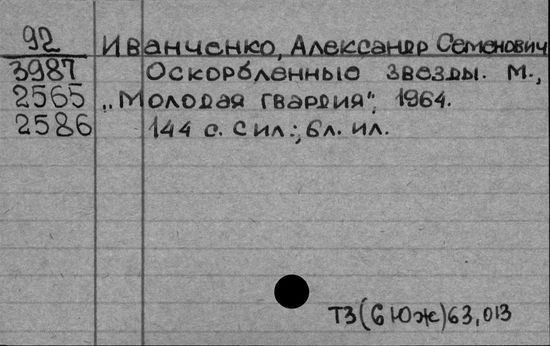 92 Иванченко, Александр Семенович
3987 Оскорбленные звезды. М.,
2565 „Молодая гвардия", 1964.
2586 144 с. с ил.; 6л. ил.
Т3(6Юж)63,013